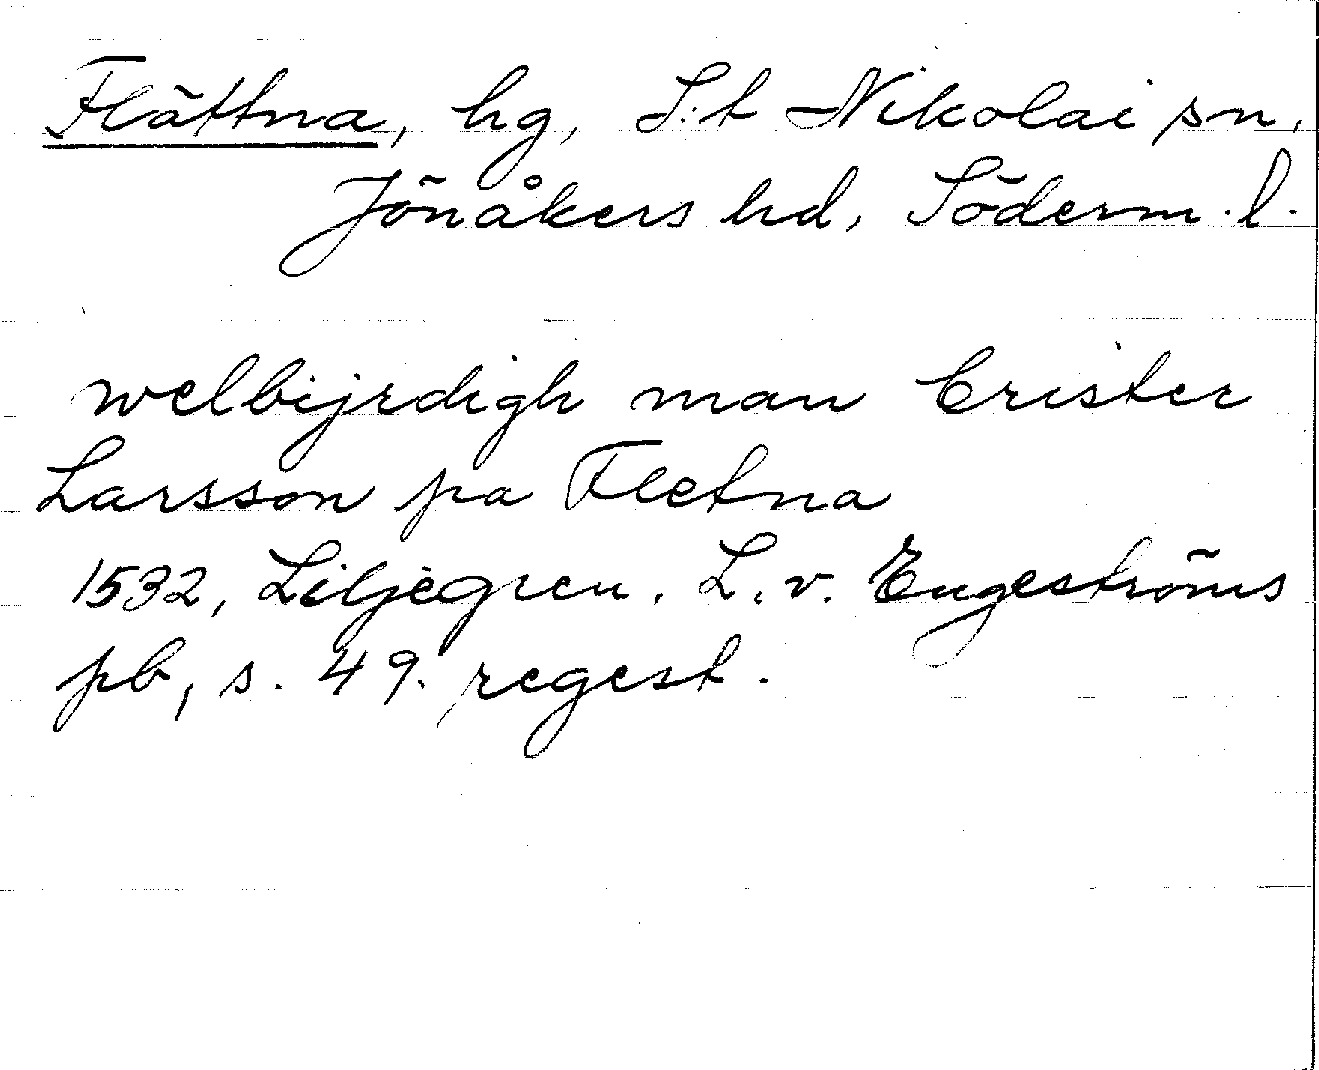 Flättna, hg, S:t Nikolai sn,
Jönåkers hd, Söderm. l.
welbijrdigh man Crister
Larsson pa Fletna
1532, Liljegren. L. v. Engeströms
pb, s. 49. regest.